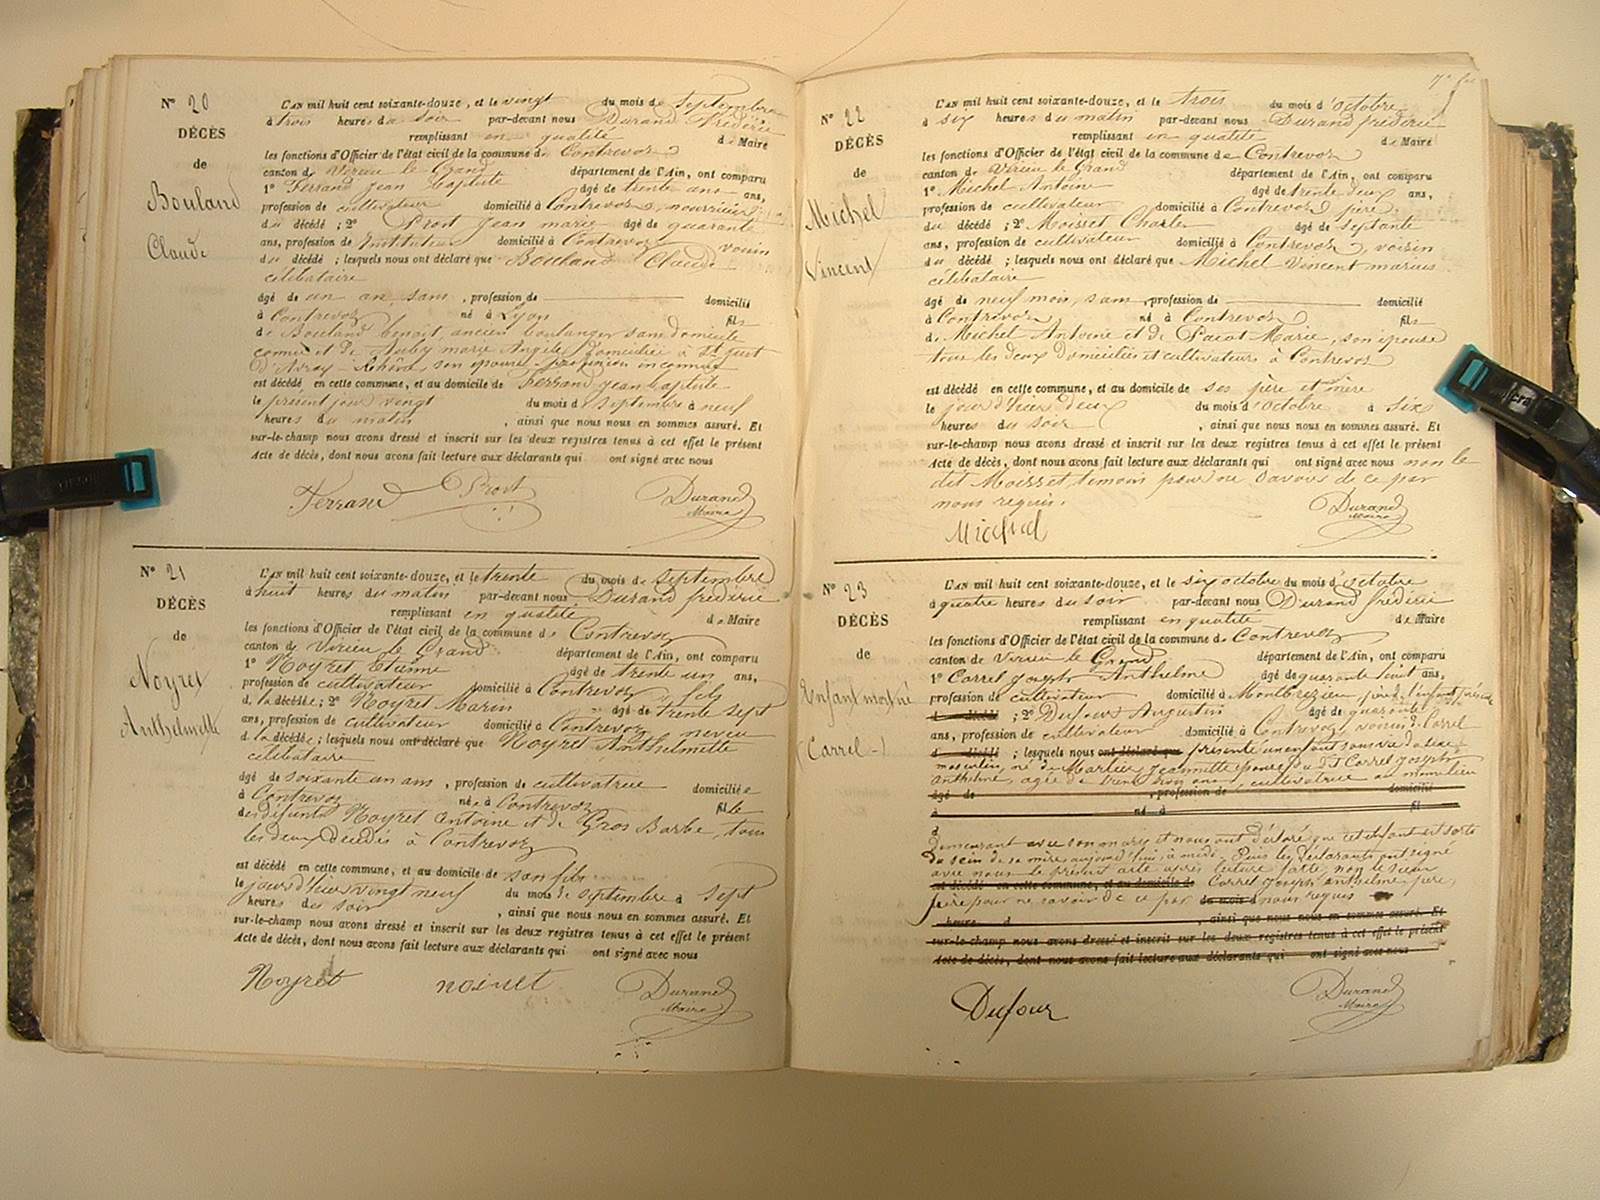 N° 20
DÉCÈS
de
Bouland
Claude
L'AN mil huit cent soixante-douze, et le vingt du mois de septembre
à trois heures du soir par-devant nous Durand frédéric
remplissant en qualité de Maire
les fonctions d'Officier de l'état civil de la commune de Contrevoz
canton de Virieu le Grand département de l'Ain, ont comparu
1° Ferrand Jean baptiste âgé de trente ans ans,
profession de cultivateur domicilié à Contrevoz, nourricier
du décédé ; 2° Prost Jean marie âgé de quarante
ans, profession de Instituteur domicilié à Contrevoz voisin
du décédé ; lesquels nous ont déclaré que Bouland Claude
célibataire
âgé de un an, sans , profession de domicilié
à Contrevoz né à Lyon fils
de Bouland benoit, ancien boulanger sans domicile
connu et de Auby marie Angèle domiciliée à St
son épouse profession inconnue
est décédé en cette commune, et au domicile de Ferrand Jean baptiste
le présent jour vingt du mois de septembre à neuf
heures du matin , ainsi que nous nous en sommes assuré. Et
sur-le-champ nous avons dressé et inscrit sur les deux registres tenus à cet effet le présent
Acte de décès, dont nous avons fait lecture aux déclarants qui ont signé avec nous
Ferrand Prost Durand
Maire
N° 21
DÉCÈS
de
Noyret
Anthelmette
L'AN mil huit cent soixante-douze, et le trente du mois de septembre
à huit heures du matin par-devant nous Durand frédéric
remplissant en qualité de Maire
les fonctions d'Officier de l'état civil de la commune de Contrevoz
canton de Virieu le Grand département de l'Ain, ont comparu
1° Noyret Etienne âgé de trente un ans,
profession de cultivateur domicilié à Contrevoz, fils
d. la décédée ; 2° Noyret Marin âgé de trente sept
ans, profession de cultivateur domicilié à Contrevoz neveu
d. la décédée ; lesquels nous ont déclaré que Noyret Anthelmette
célibataire
âgé de soixante un ans , profession de cultivatrice domiciliée
à Contrevoz née à Contrevoz fille
des défunts Noyret Antoine et de Gros Barbe, tous
les deux décédés à Contrevoz
est décédé en cette commune, et au domicile de son fils
le jour d'hier vingt neuf du mois de septembre à sept
heures du soir , ainsi que nous nous en sommes assuré. Et
sur-le-champ nous avons dressé et inscrit sur les deux registres tenus à cet effet le présent
Acte de décès, dont nous avons fait lecture aux déclarants qui ont signé avec nous
Noyret Durand
Maire
N° 22
DÉCÈS
de
Michel
Vincent
L'AN mil huit cent soixante-douze, et le trois du mois d'octobre
à six heures du matin par-devant nous Durand frédéric
remplissant en qualité de Maire
les fonctions d'Officier de l'état civil de la commune de Contrevoz
canton de Virieu le Grand département de l'Ain, ont comparu
1° Michel Antoine âgé de trente deux ans,
profession de cultivateur domicilié à Contrevoz père
du décédé ; 2° Moisset Charles âgé de septante
ans, profession de cultivateur domicilié à Contrevoz, voisin
du décédé ; lesquels nous ont déclaré que Michel Vincent marius
célibataire
âgé de neuf mois, sans , profession de domicilié
à Contrevoz né à Contrevoz fils
de Michel Antoine et de Pacot Marie, son épouse
tous les deux domiciliés et cultivateurs à Contrevoz
est décédé en cette commune, et au domicile de ses père et mère
le jour d'hier deux du mois d'octobre à six
heures du soir , ainsi que nous nous en sommes assuré. Et
sur-le-champ nous avons dressé et inscrit sur les deux registres tenus à cet effet le présent
Acte de décès, dont nous avons fait lecture aux déclarants qui ont signé avec nous non le
dit Moisset temoin pour ne savoir de ce par
nous requis.
Michel Durand
Maire
N° 23
DÉCÈS
de
Enfant mort né
(Carrel -)
L'AN mil huit cent soixante-douze, et le six octobre du mois d'octobre
à quatre heures du soir par-devant nous Durand frédéric
remplissant en qualité de Maire
les fonctions d'Officier de l'état civil de la commune de Contrevoz
canton de Virieu le Grand département de l'Ain, ont comparu
1° Carrel Joseph Anthelme âgé de quarante huit ans,
profession de cultivateur domicilié à Montbrezieu, père de l'enfant
d décédé ; 2° Dufour Augustin âgé de quarante
ans, profession de cultivateur domicilié à Contrevoz, voisin d. Carrel
d décédé ; lesquels nous ont déclaré que présenté un enfant sans vie du sexe
masculin, né de Martin Jeannette épouse du dit Carrel Joseph
Anthelme, agée de trente trois ans, cultivatrice au
âgé de , profession de domicilié
à né à fil
d
Demeurant avec son mari et nous ont déclaré que cet enfant est sorti
du sein de sa mère aujourd'hui à midi. Puis les déclarants ont signé
avec nous le présent acte après lecture faite, non le sieur
est décédé en cette commune, et au domicile de Carrel Joseph anthelme père,
pour ne savoir de ce par du mois d nous requis
heure d , ainsi que nous nous en sommes assuré. Et
sur-le-champ nous avons dressé et inscrit sur les deux registres tenus à cet effet le présent
Acte de décès, dont nous avons fait lecture aux déclarants qui ont signé avec nous
Dufour Durand
Maire